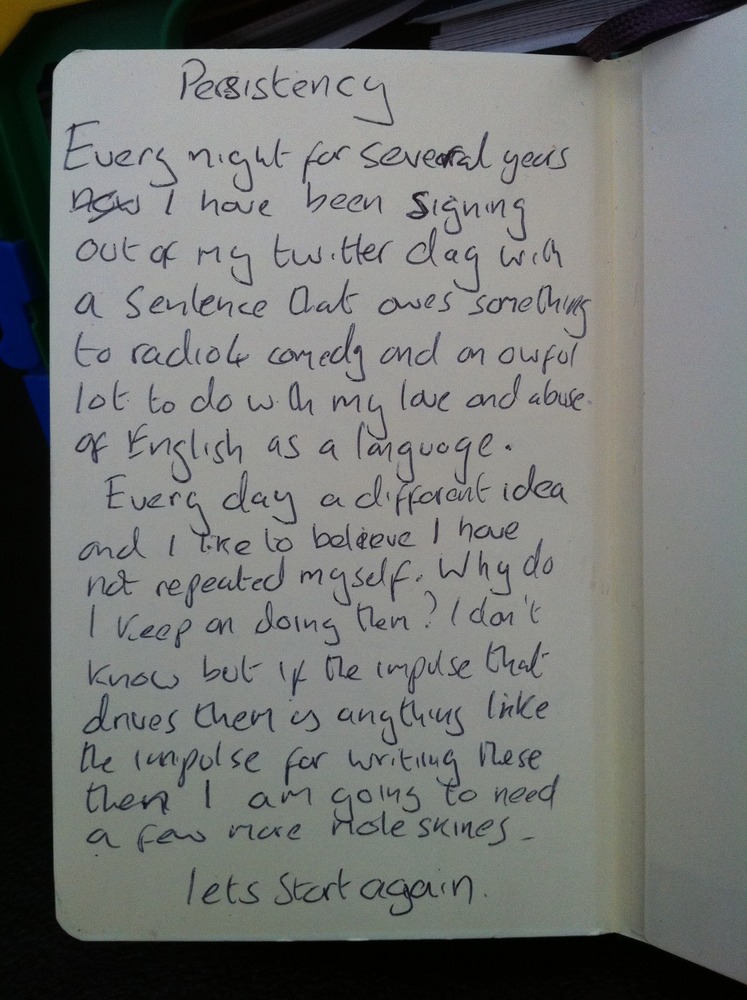 Persistency
Every night for several years
now I have been signing
out of my twitter day with
a sentence that owes something
to radio4 comedy and an awful
lot to do with my love and abuse.
of English as a language.
Every day a different idea
and I like to believe I have
not repeated myself. Why do
I keep on doing them? I don't
know but if the impulse that
drives them is anything linke
the impulse for writing these
then I am going to need
a few more moleskines -
lets start again.